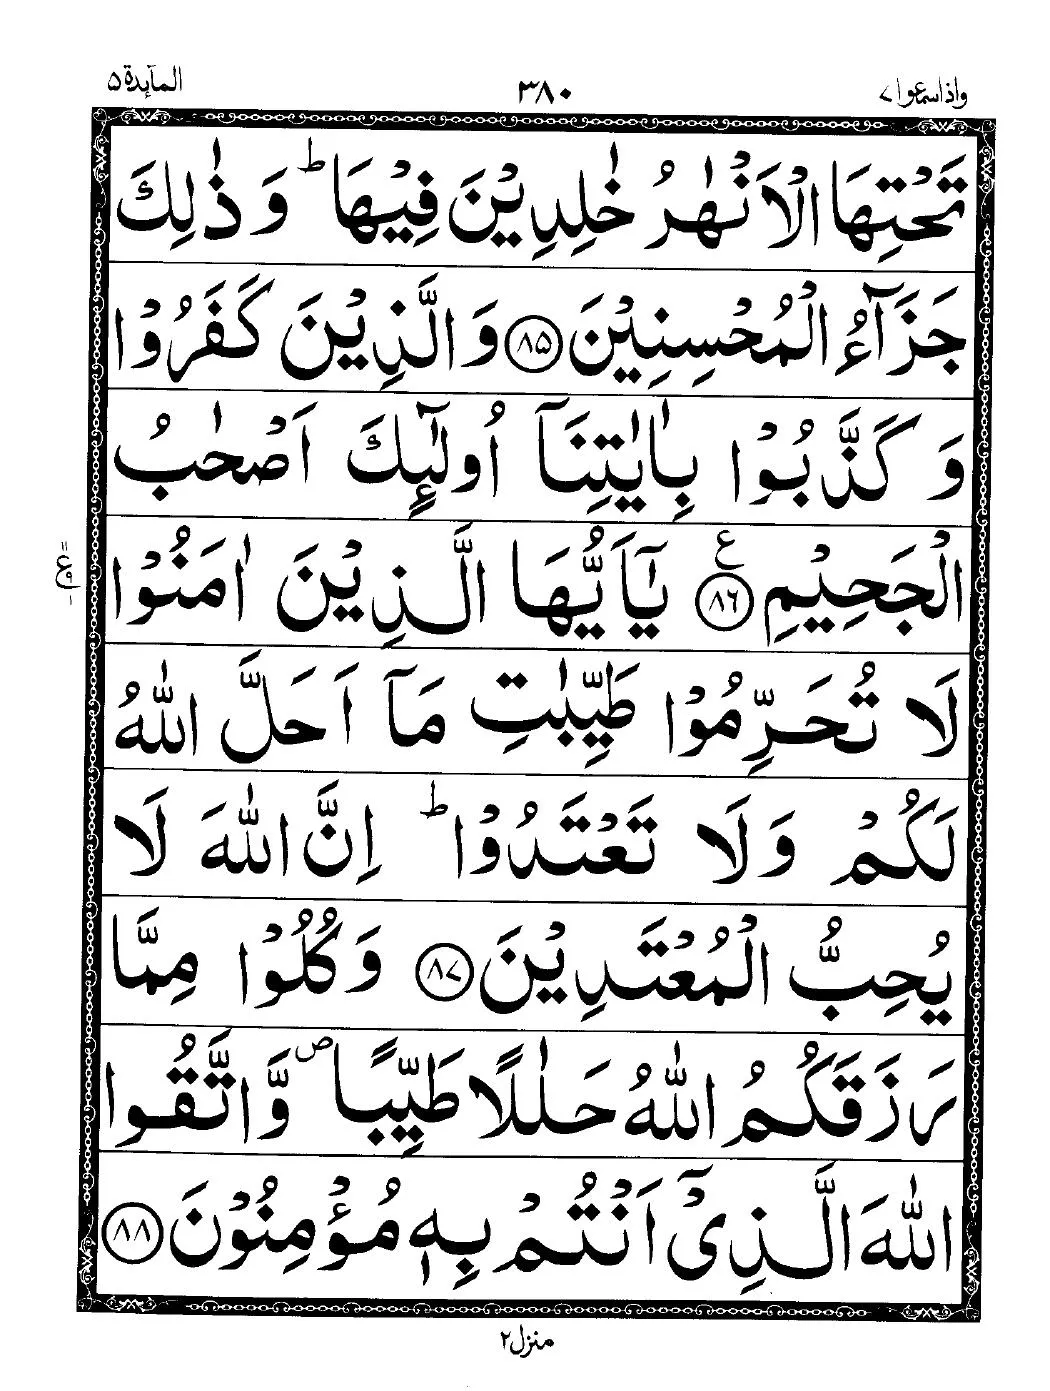 واذاسمعوا ٧ ٣٨٠ المآىِٕدة ٥
تَحْتِهَا الْاَنْهٰرُ خٰلِدِيْنَ فِيْهَا ؕ وَ ذٰلِكَ
جَزَآءُ الْمُحْسِنِيْنَ ۸۵ وَ الَّذِيْنَ كَفَرُوْا
وَ كَذَّبُوْا بِاٰيٰتِنَاۤ اُولٰٓىِٕكَ اَصْحٰبُ
الْجَحِيْمِ ع ۸۶ يٰۤاَيُّهَا الَّذِيْنَ اٰمَنُوْا
لَا تُحَرِّمُوْا طَيِّبٰتِ مَاۤ اَحَلَّ اللّٰهُ
لَكُمْ وَ لَا تَعْتَدُوْا ؕ اِنَّ اللّٰهَ لَا
يُحِبُّ الْمُعْتَدِيْنَ ۸۷ وَ كُلُوْا مِمَّا
رَزَقَكُمُ اللّٰهُ حَلٰلًا طَيِّبًا ص وَّ اتَّقُوا
اللّٰهَ الَّذِيْۤ اَنْتُمْ بِهٖ مُؤْمِنُوْنَ ۸۸
منزل ٢